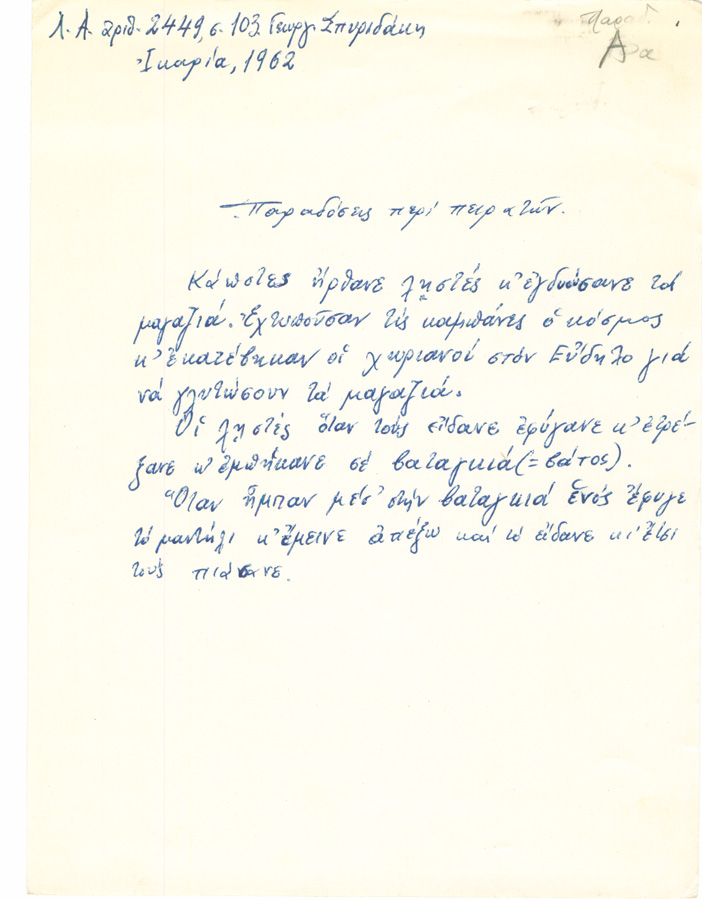 Λ. Α. ἀριθ. 2449, σ. 103. Γεωργ. Σπυριδάκη
Ἰκαρία, 1962
Παραδ.
Παραδόσεις περί πειρατῶν.
Κάποτες ἤρθανε λῃστές κ' ἐγδυώσανε τά
μαγαζιά. Ἐχτυποῦσαν τίς καμπάνες ὁ κόσμος
κ' ἐκατέβηκαν οἱ χωριανοί στόν Εὔδηλο γιά
νά γλυτώσουν τά μαγαζιά.
Οἱ λῃστές ὅταν τούς εἴδανε ἐφύγανε κ' ἐτρέ-
ξανε κ' ἐμπήκανε σέ βαταγκιά (= βάτος).
Ὅταν ἦμπαν μέσ' στήν βαταγκιά ἑνός ἔφυγε
τό μαντήλι κ' ἔμεινε ἀπέξω καί τό εἴδανε κι' ἔτσι
τούς πιάσανε.